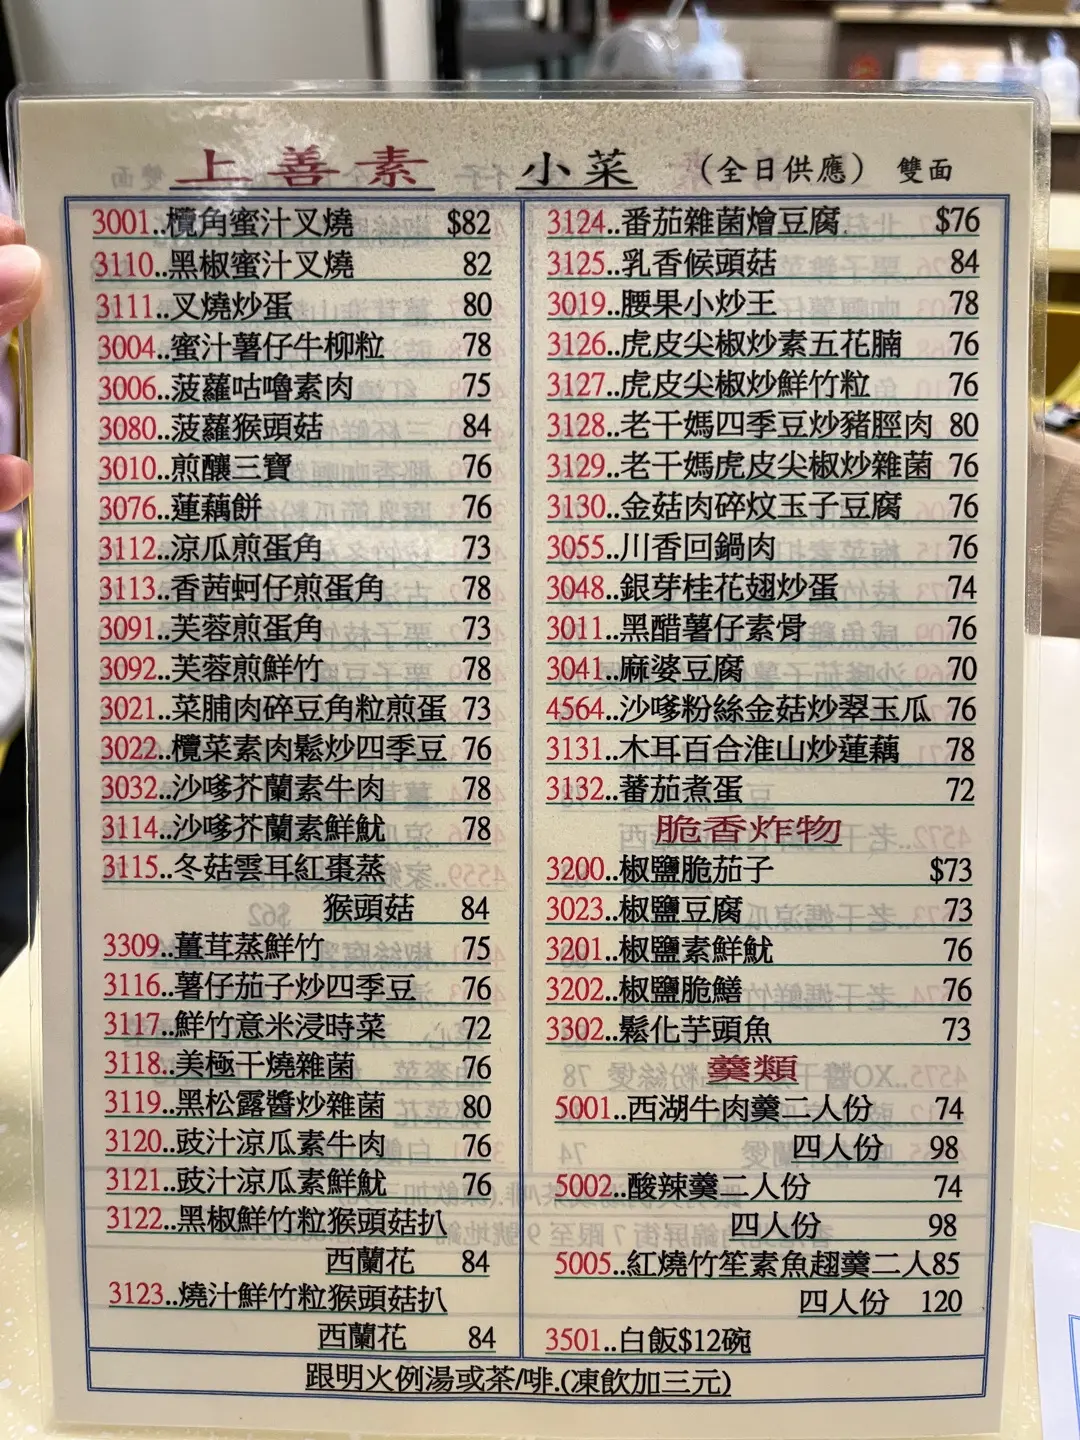 上善素 小菜 (全日供應) 雙面
3001..欖角蜜汁叉燒 $82
3110..黑椒蜜汁叉燒 82
3111..叉燒炒蛋 80
3004..蜜汁薯仔牛柳粒 78
3006..菠蘿咕嚕素肉 75
3080..菠蘿猴頭菇 84
3010..煎釀三寶 76
3076..蓮藕餅 76
3112..涼瓜煎蛋角 73
3113..香茜蚵仔煎蛋角 78
3091..芙蓉煎蛋角 73
3092..芙蓉煎鮮竹 78
3021..菜脯肉碎豆角粒煎蛋 73
3022..欖菜素肉鬆炒四季豆 76
3032..沙嗲芥蘭素牛肉 78
3114..沙嗲芥蘭素鮮魷 78
3115..冬菇雲耳紅棗蒸
猴頭菇 84
3309..薑茸蒸鮮竹 75
3116..薯仔茄子炒四季豆 76
3117..鮮竹意米浸時菜 72
3118..美極干燒雜菌 76
3119..黑松露醬炒雜菌 80
3120..豉汁涼瓜素牛肉 76
3121..豉汁涼瓜素鮮魷 76
3122..黑椒鮮竹粒猴頭菇扒
西蘭花 84
3123..燒汁鮮竹粒猴頭菇扒
西蘭花 84
3124..番茄雜菌燴豆腐 $76
3125..乳香候頭菇 84
3019..腰果小炒王 78
3126..虎皮尖椒炒素五花腩 76
3127..虎皮尖椒炒鮮竹粒 76
3128..老干媽四季豆炒豬脛肉 80
3129..老干媽虎皮尖椒炒雜菌 76
3130..金菇肉碎炆玉子豆腐 76
3055..川香回鍋肉 76
3048..銀芽桂花翅炒蛋 74
3011..黑醋薯仔素骨 76
3041..麻婆豆腐 70
4564..沙嗲粉絲金菇炒翠玉瓜 76
3131..木耳百合淮山炒蓮藕 78
3132..蕃茄煮蛋 72
脆香炸物
3200..椒鹽脆茄子 $73
3023..椒鹽豆腐 73
3201..椒鹽素鮮魷 76
3202..椒鹽脆鱔 76
3302..鬆化芋頭魚 73
羹類
5001..西湖牛肉羹二人份 74
四人份 98
5002..酸辣羹二人份 74
四人份 98
5005..紅燒竹笙素魚翅羹二人85
四人份 120
3501..白飯$12碗
跟明火例湯或茶/啡.(凍飲加三元)